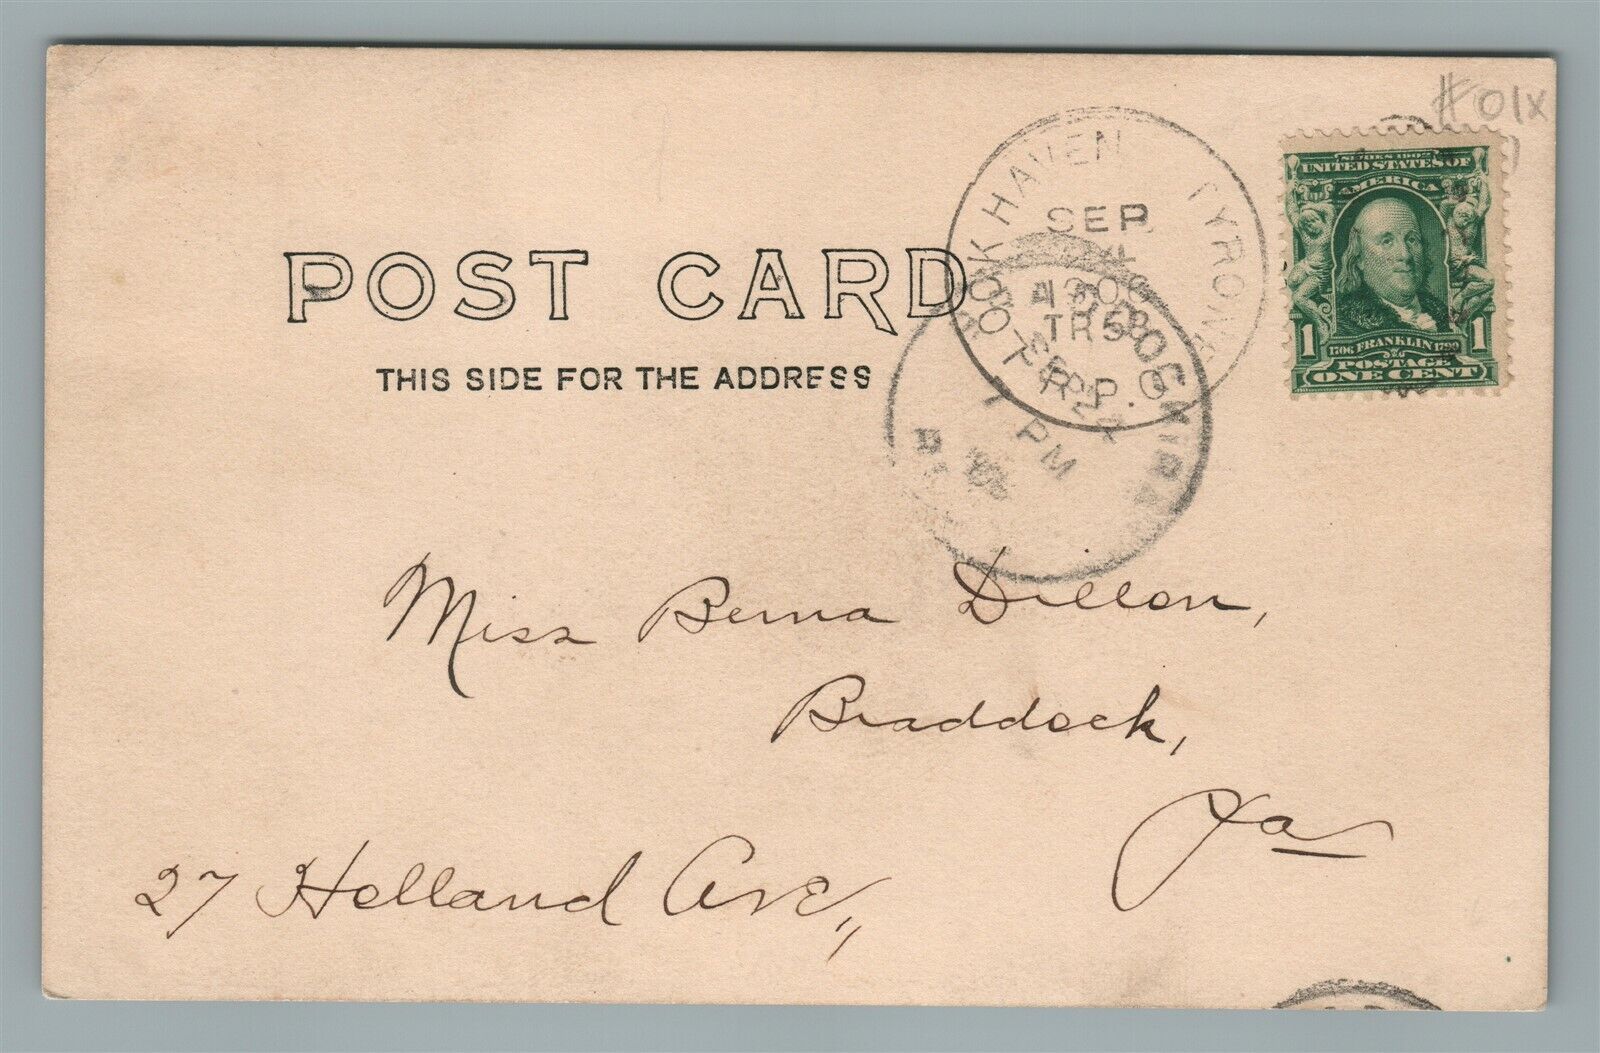 #01x
SERIES 1902
UNITED STATES OF
AMERICA
1 1
1706 FRANKLIN 1790
POSTAGE
ONE CENT
LOCK HAVEN TYRONE
SEP
4
1906
TR 5
R.P.O
SEP
PM
POST CARD
THIS SIDE FOR THE ADDRESS
Miss Berna Dillon,
Braddock,
Pa
27 Holland Ave.,